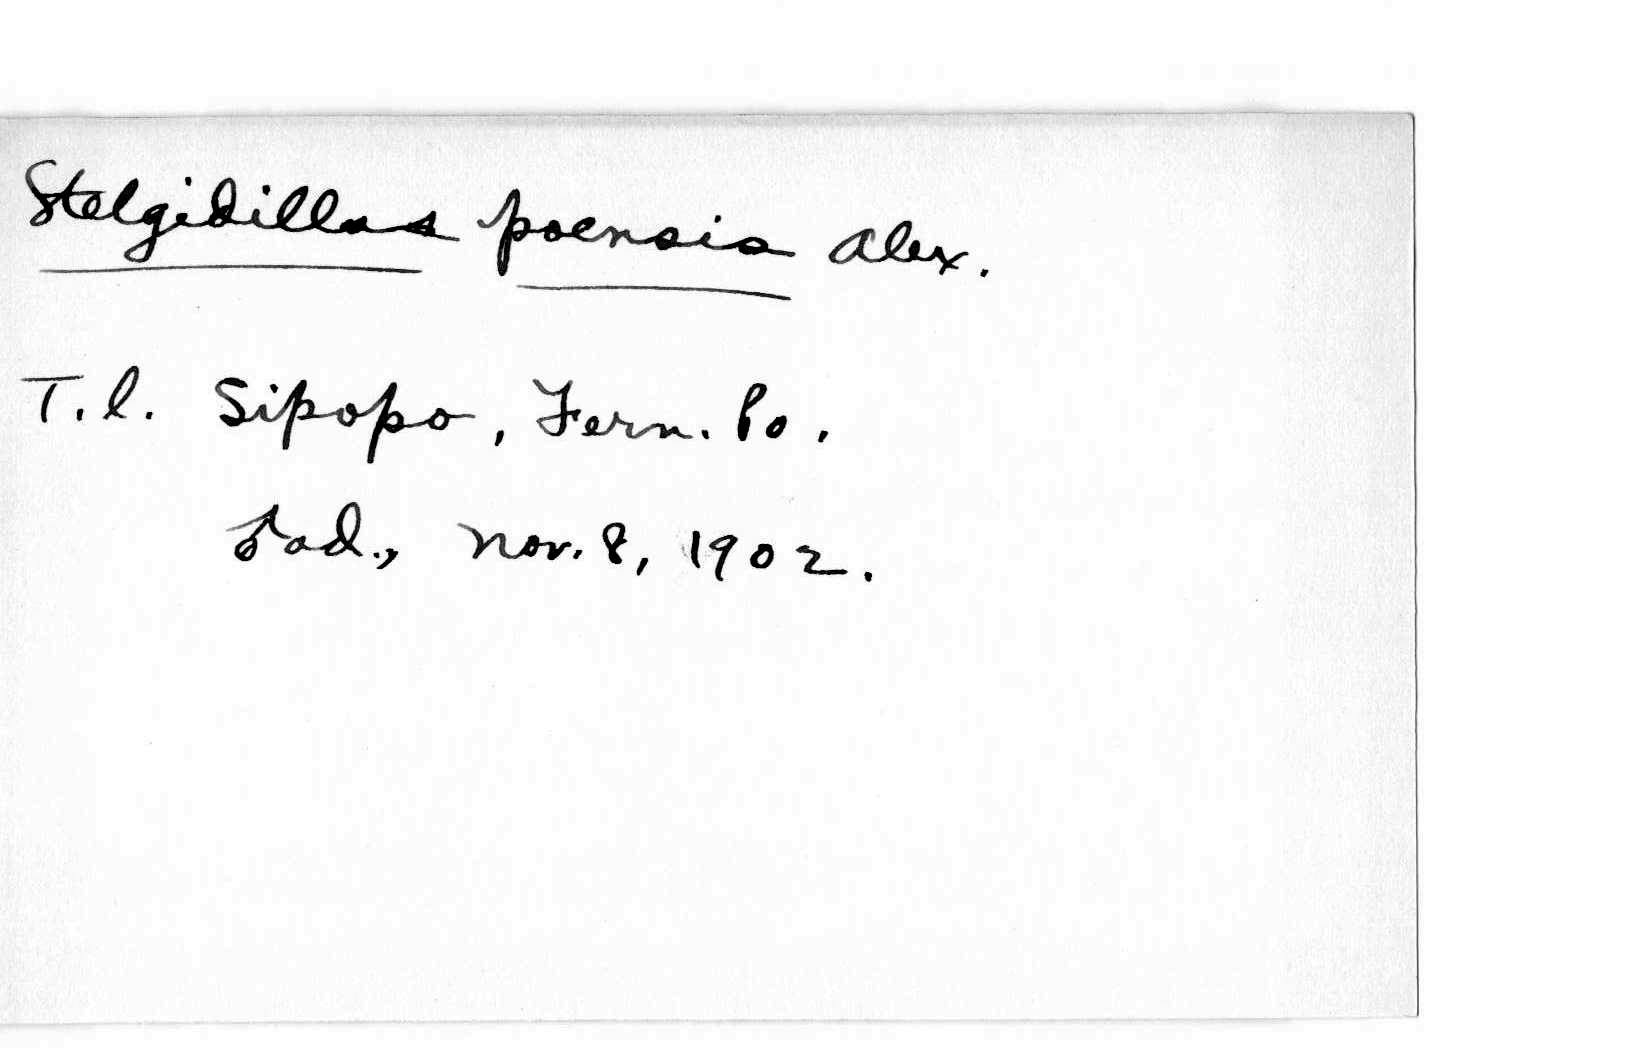 Stelgidillas poensis Alex.
T.l. Sipopo, Fern. Po.
♂ad., Nov. 8, 1902.